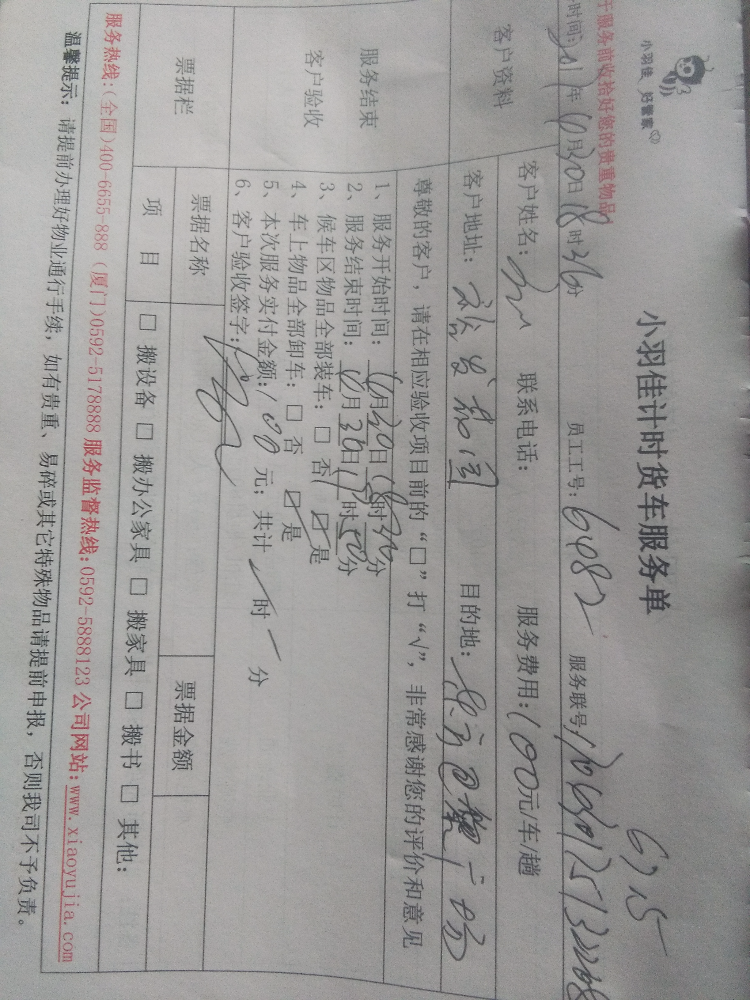 小羽佳 好管家
小羽佳计时货车服务单
于服务前收拾好您的贵重物品
6215
时间: 年 10月20日18时36分 员工工号: 6082 服务联号
客户资料
客户姓名: 联系电话: 服务费用:100元/车/趟
客户地址: 目的地:
服务结束
客户验收
尊敬的客户，请在相应验收项目前的“□”打“√”，非常感谢您的评价和意见
1、服务开始时间: 10月20日18时 分
2、服务结束时间: 10月20日 时50分
3、候车区物品全部装车: □ 否 ☑ 是
4、车上物品全部卸车: □ 否 ☑ 是
5、本次服务实付金额: 100 元; 共计 时 分
6、客户验收签字:
票据栏
票据名称 票据金额
项 目 □ 搬设备 □ 搬办公家具 □ 搬家具 □ 搬书 □ 其他:
服务热线:(全国)400-6655-888 (厦门)0592-5178888 服务监督热线:0592-5888123 公司网站:www.xiaoyujia.com
温馨提示: 请提前办理好物业通行手续，如有贵重、易碎或其它特殊物品请提前申报，否则我司不予负责。